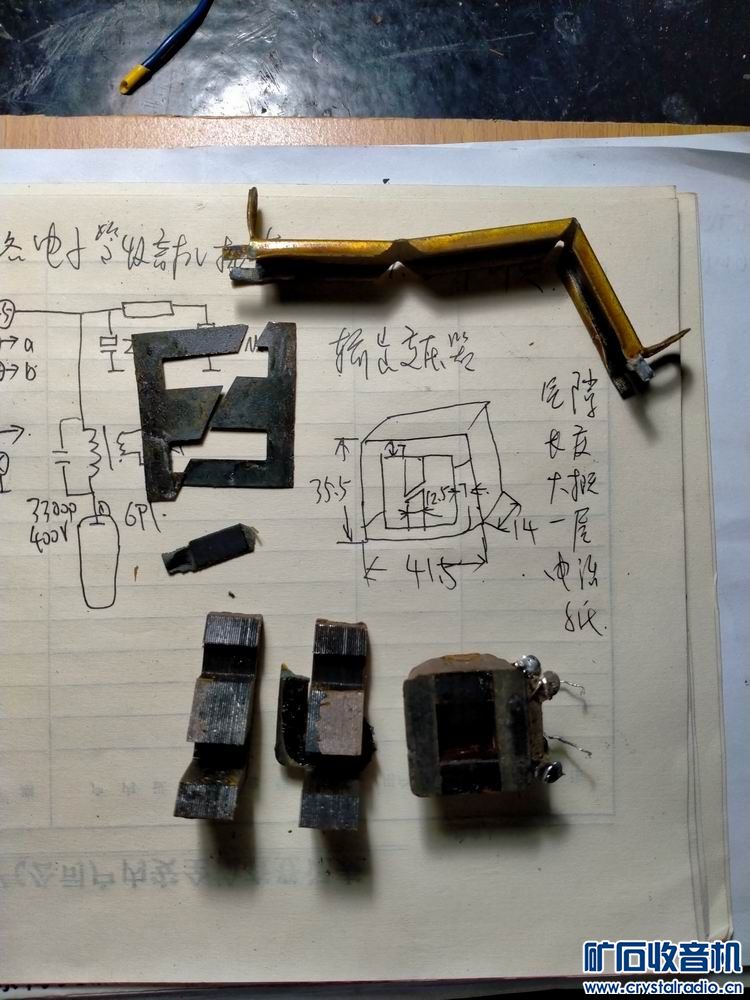 电子管收音机
a
b
3300p
400V
6P1
输出变压器
35.5
7
12.5
7
14
41.5
气隙
长度
大概
一层
电话
纸
矿石收音机
www.crystalradio.cn